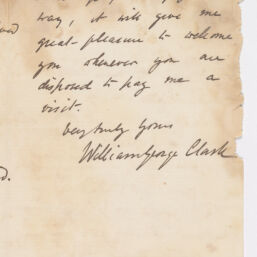 way, it will give me
great pleasure to welcome
you whenever you are
disposed to pay me a
visit.
Very truly yours
William George Clark